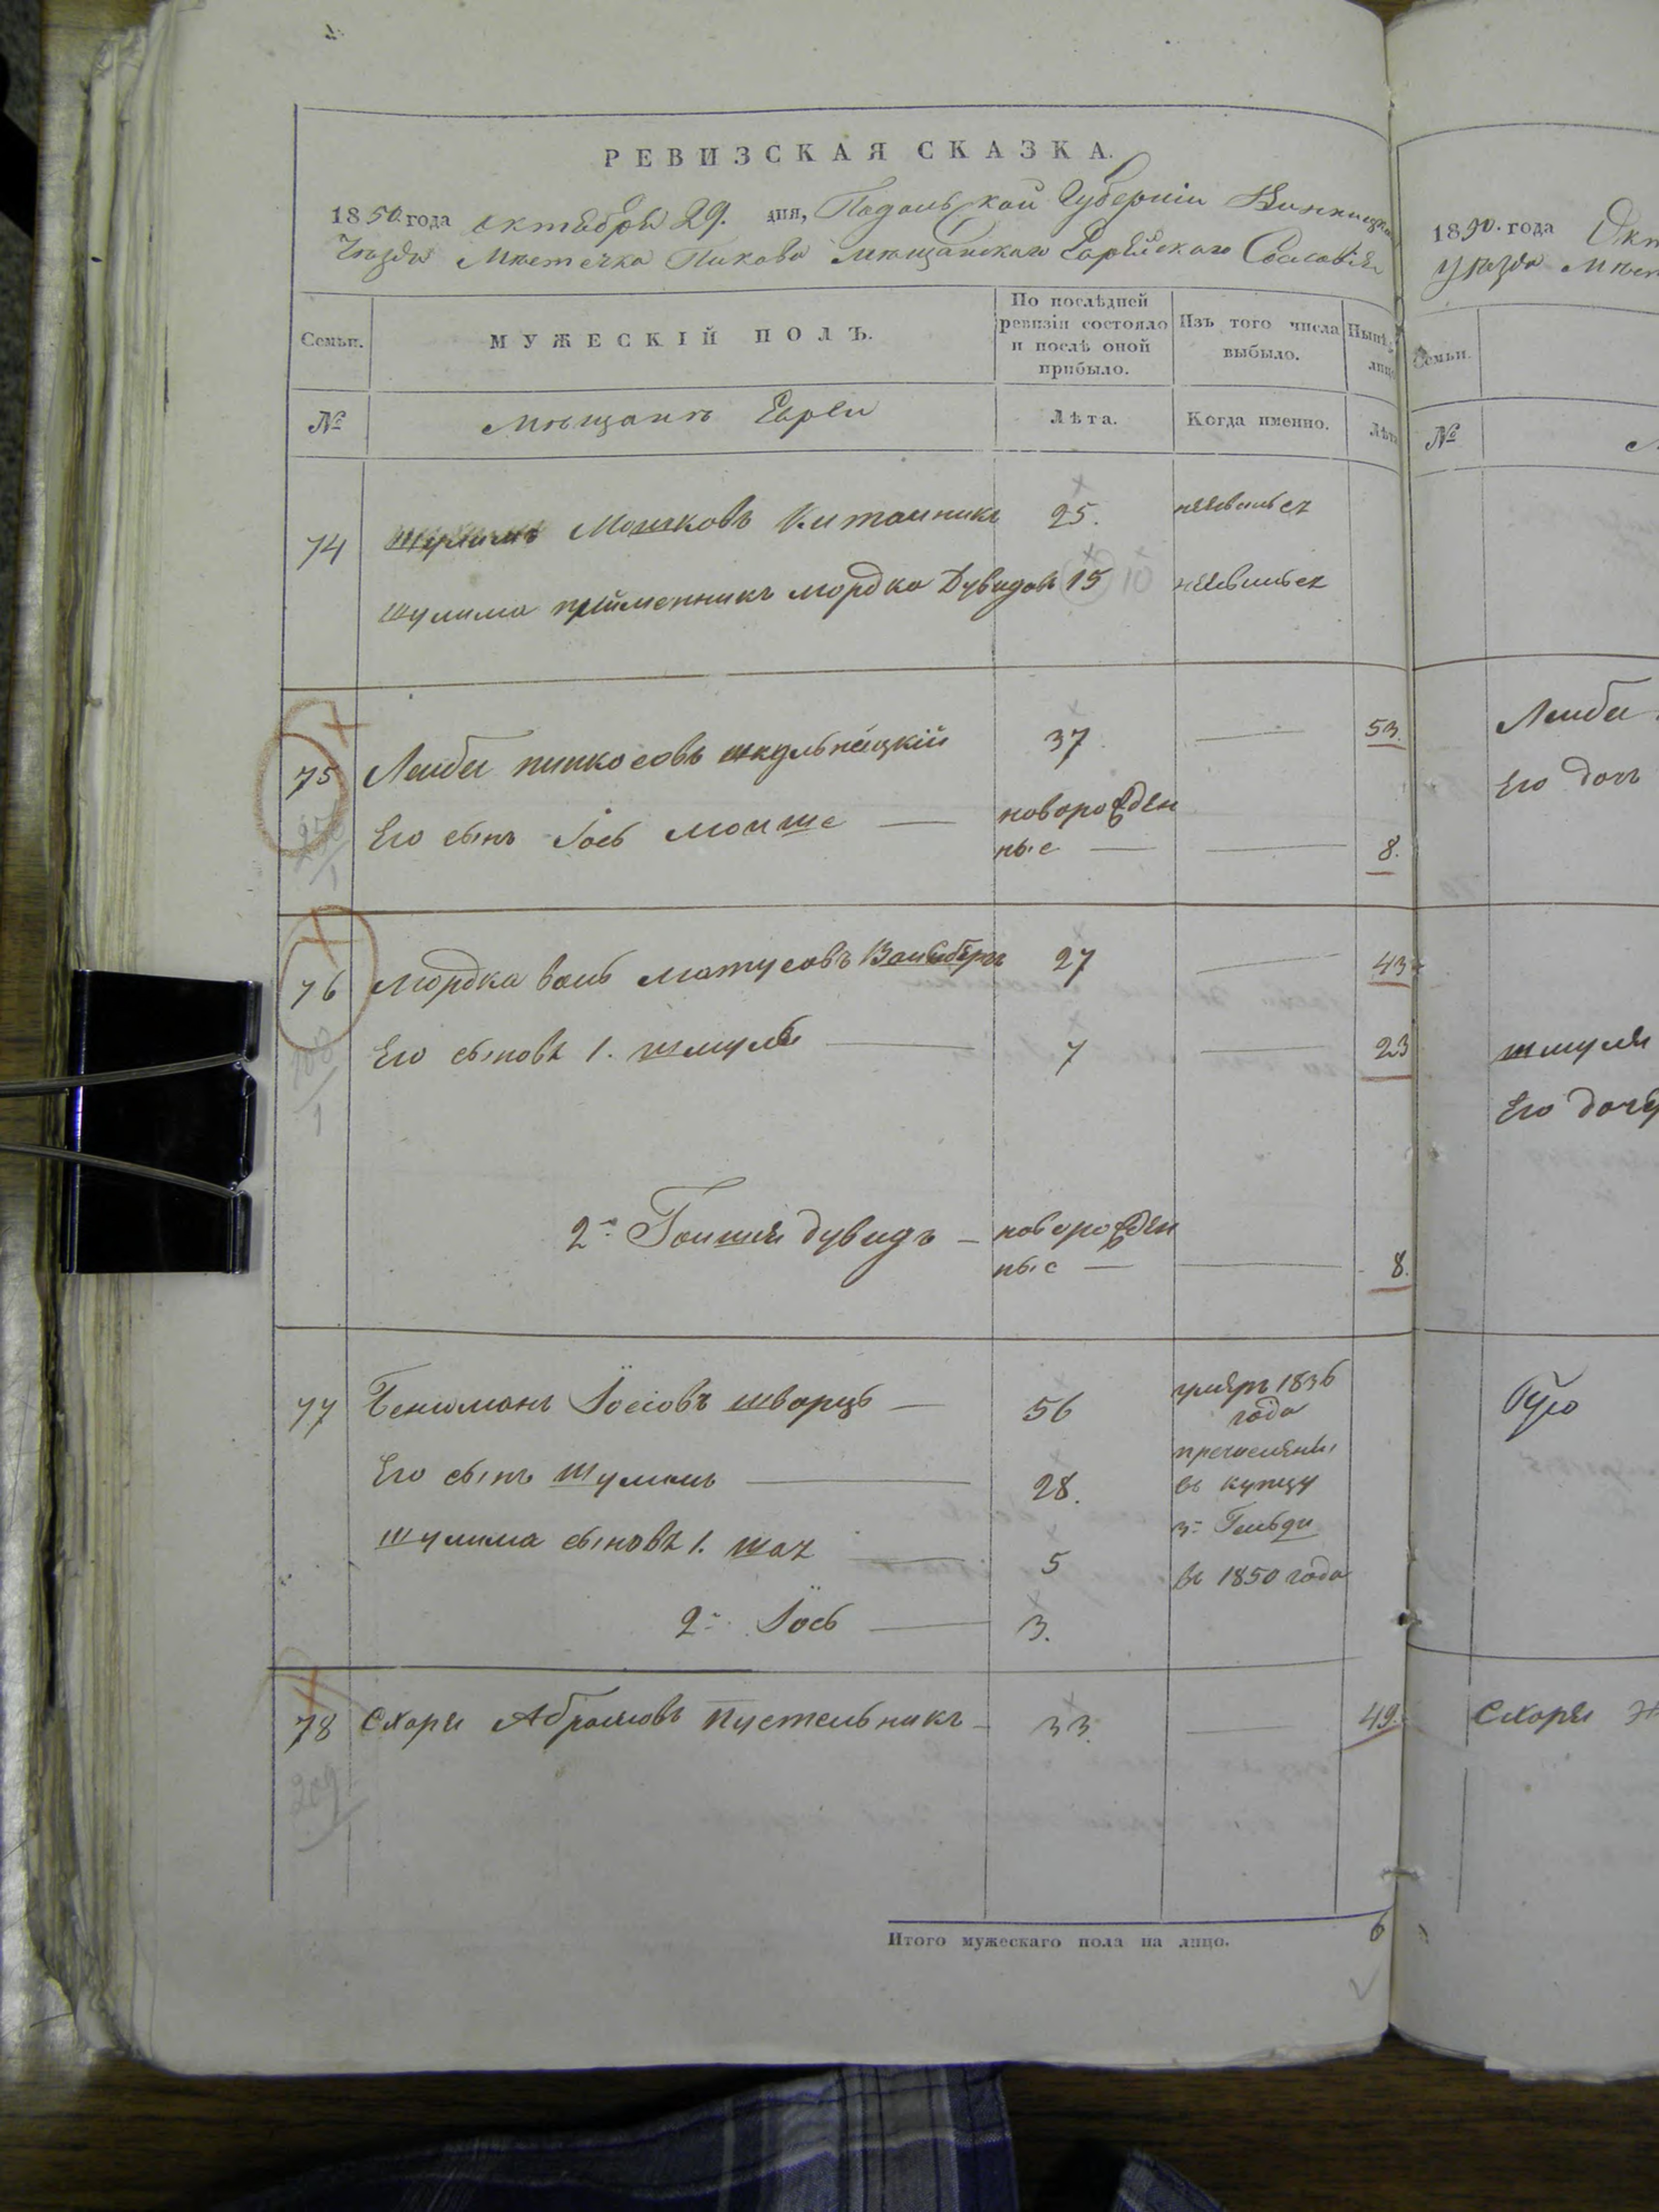 РЕВИЗСКАЯ СКАЗКА.
1850 года октября 29. дня, Подольской Губернии Винницкаго
Уезда Местечка Пикова Мѣщанскаго Еврейскаго Сословія
Семьи.
МУЖЕСКІЙ ПОЛЪ.
По послѣдней ревизіи состояло и послѣ оной прибыло.
Изъ того числа выбыло.
Нынѣ лицо
№
мѣщанъ Евреи
Лѣта.
Когда именно.
Лѣта
74 Шулимъ Мошковъ Китайникъ 25. неявился
Шулима прийменникъ мордко Дувидовъ 15 10 неявился
75 Лейба пинкосовъ шкульнецкій 37 — 53.
Его сынъ Іось мойше — новорожден
ные — — 8.
76 Мордко воль мотусовъ Вайсберг 27 — 43
Его сыновъ 1. шмуль — 7 — 23
1
2й Гойших дувидъ — новорожден
ные — — 8.
77 Бениоминъ Іосіовъ шварцъ — 56 умеръ 1836
года
Его сынъ Шулимъ — 28. пречислены
въ купцу
Шулима сыновъ 1. шаѣ — 5 3й Гильди
въ 1850 года
2й Іось — 3.
78 Схаря Абрамовъ Пустельникъ — 33. — 49.
209
Итого мужескаго пола на лицо. 6
1850. года Окт
Уезда Мест
Семьи.
№
Лейба
Его дочь
шмуля
Его дочер
Схаря